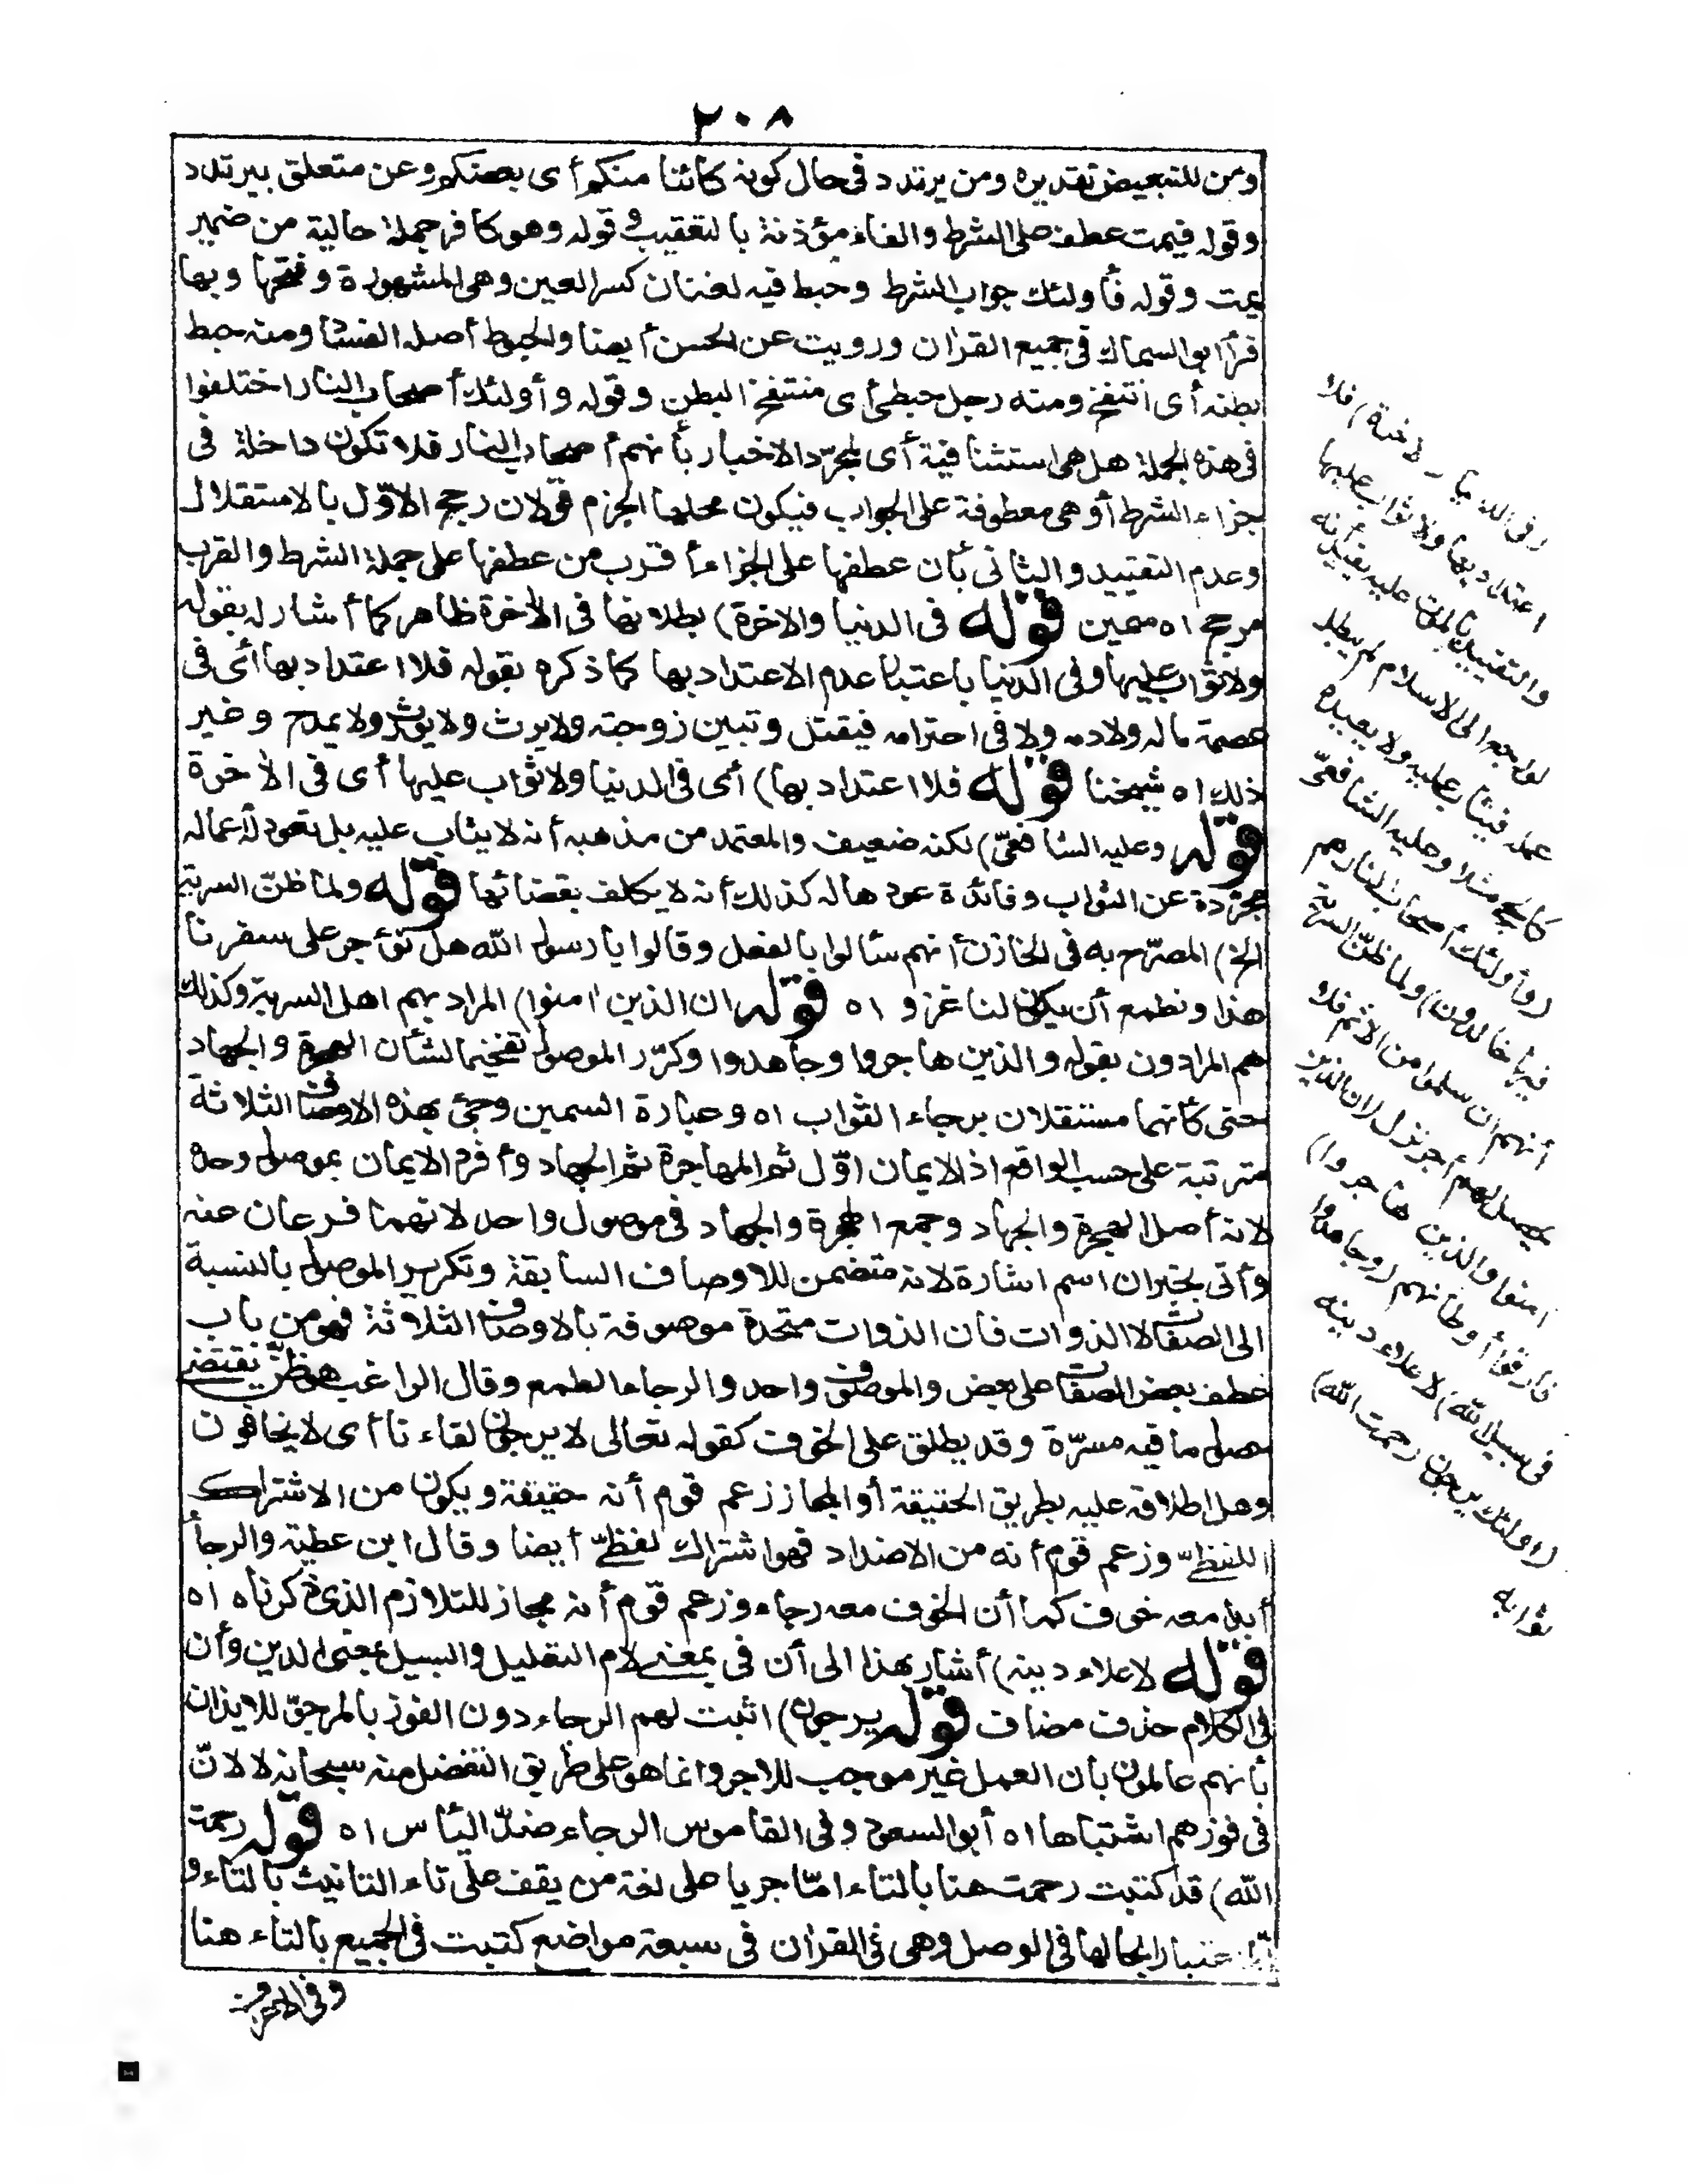 ٢٠٨
ومن للتبعيض تقديره ومن يرتدد فى حال كونه كائنا منكم أى بعضكم وعن متعلق بيرتدد
وقوله فيمت عطف على الشرط والفاء مؤذنة بالتعقيب و قوله وهو كافر جملة حالية من ضمير
يمت وقوله فأولئك جواب الشرط وحبط فيه لغتان كسر العين وهى المشهورة وفتحها وبها
قرأ أبو السماك فى جميع القرآن ورويت عن الحسن أيضا والحبوط أصله الفساد ومنه حبط
بطنه أى انتفخ ومنه رجل حبطى أى منتفخ البطن وقوله وأولئك أصحاب النار اختلفوا
فى هذه الجملة هل هى استئنافية أى لمجرّد الاخبار بأنهم أصحاب النار فلا تكون داخلة فى
جزاء الشرط أو هى معطوفة على الجواب فيكون محلها الجزم قولان رجح الاوّل بالاستقلال
وعدم التقييد والثانى بأن عطفها على الجزاء أقرب من عطفها على جملة الشرط والقرب
مرجح اه سمين قوله فى الدنيا والاخرة) بطلانها فى الاخرة ظاهر كما أشار له بقوله
ولا ثواب عليها وفى الدنيا باعتبار عدم الاعتداد بها كما ذكره بقوله فلا اعتداد بها أى فى
عصمة ماله ولا دمه ولا فى احترامه فيقتل وتبين زوجته ولا يرث ولا يورث ولا يمدح وغير
ذلك اه شيخنا قوله فلا اعتداد بها) أى فى الدنيا ولا ثواب عليها أى فى الاخرة
قوله وعليه الشافعىّ) لكنه ضعيف والمعتمد من مذهبه أنه لا يثاب عليه بل تعود له أعماله
مجرّدة عن الثواب وفائدة عودها له كذلك أنه لا يكلف بقضائها قوله ولما ظنّ السرية
الخ) المصرّح به فى الخازن أنهم سألوا بالفعل وقالوا يا رسول الله هل نؤجر على سفرنا
هذا ونطمع أن يكون لنا غزو اه قوله ان الذين امنوا) المراد بهم اهل السرية وكذلك
هم المرادون بقوله والذين هاجروا وجاهدوا وكرّر الموصول تفخيما لشأن الهجرة والجهاد
حتى كأنهما مستقلان برجاء الثواب اه وعبارة السمين وجئ بهذه الاوصاف الثلاثة
مترتبة على حسب الواقع اذ الايمان اوّل ثم المهاجرة ثم الجهاد وأفرد الايمان بموصول وحده
لانه أصل الهجرة والجهاد وجمع الهجرة والجهاد فى موصول واحد لانهما فرعان عنه
وأتى بخبر ان اسم اشارة لانه متضمن للاوصاف السابقة وتكرير الموصول بالنسبة
الى الصفات لا الذوات فان الذوات متحدة موصوفة بالاوصاف الثلاثة فهو من باب
عطف بعض الصفات على بعض والموصوف واحد والرجاء الطمع وقال الراغب هو ظنّ يقتضى
حصول ما فيه مسرّة وقد يطلق على الخوف كقوله تعالى لا يرجون لقاءنا أى لا يخافون
وهل اطلاقه عليه بطريق الحقيقة أو المجاز زعم قوم أنه حقيقة ويكون من الاشتراك
اللفظىّ وزعم قوم أنه من الاضداد فهو اشتراك لفظىّ أيضا وقال ابن عطية والرجاء
أبدا معه خوف كما أن الخوف معه رجاء وزعم قوم أنه مجاز للتلازم الذى ذكرناه اه
قوله لاعلاء دينه) أشار بهذا الى أن فى بمعنى لام التعليل والسبيل بمعنى الدين وأن
فى الكلام حذف مضاف قوله يرجون) اثبت لهم الرجاء دون الفوز بالمرجوّ للايذان
بأنهم عالمون بأن العمل غير موجب للاجر وانما هو على طريق التفضل منه سبحانه لا لانّ
فى فوزهم اشتباها اه أبو السعود وفى القاموس الرجاء ضدّ اليأس اه قوله رحمت
الله) قد كتبت رحمت هنا بالتاء امّا جريا على لغة من يقف على تاء التانيث بالتاء و
امّا اعتبارا بحالها فى الوصل وهى فى القرآن فى سبعة مواضع كتبت فى الجميع بالتاء هنا
وفى الاعراف
(فى الدنيا والاخرة) فلا
اعتداد بها ولا ثواب عليها
والتقييد بالموت عليه يفيد أنه
لو رجع الى الاسلام لم يبطل
عمله فيثاب عليه ولا يعيده
كالحج مثلا وعليه الشافعىّ
(وأولئك أصحاب النار هم
فيها خالدون) ولما ظنّ السرية
أنهم ان سلموا من الاثم فلا
يحصل لهم أجر نزل (ان الذين
امنوا والذين هاجروا)
فارقوا أوطانهم (وجاهدوا
فى سبيل الله) لاعلاء دينه
(اولئك يرجون رحمت الله)
ثوابه